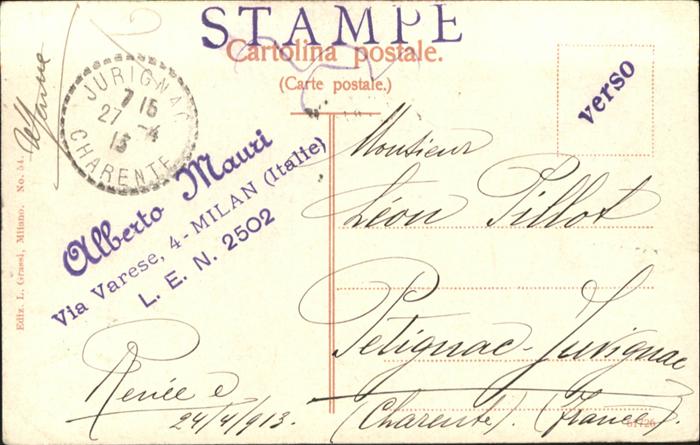 STAMPE
Cartolina postale.
(Carte postale.)
verso
JURIGNAC
7 15
27 -4
13
CHARENTE
Alberto Mauri
Via Varese, 4 - MILAN (Italie)
L. E. N. 2502
Ediz. L. Grassi, Milano. No. 54.
Monsieur
Léon Pillot
Petignac-Juvignac
(Charente). (France)
24/4/913.
61726